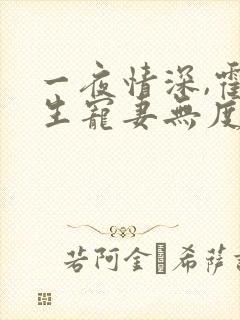 一夜情深,霍
生寵妻無度
若阿金·希薩